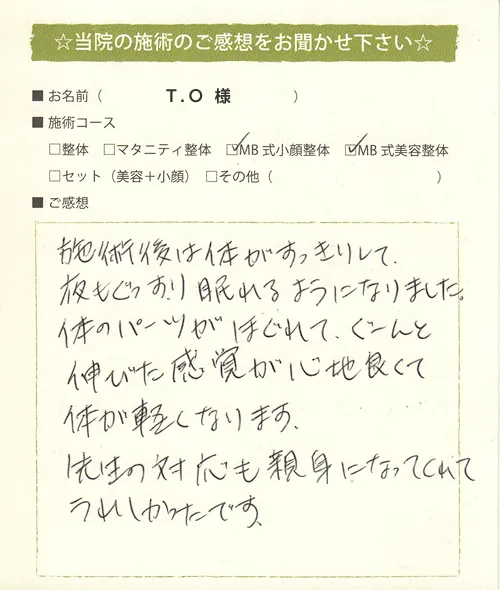 ☆当院の施術のご感想をお聞かせ下さい☆
■ お名前（ T.O 様 ）
■ 施術コース
□整体 □マタニティ整体 ☑MB式小顔整体 ☑MB式美容整体
□セット（美容＋小顔） □その他（ ）
■ ご感想
施術後は体がすっきりして、
夜もぐっすり眠れるようになりました。
体のパーツがほぐれて、ぐーんと
伸びた感覚が心地良くて
体が軽くなります。
先生の対応も親身になってくれて
うれしかったです。